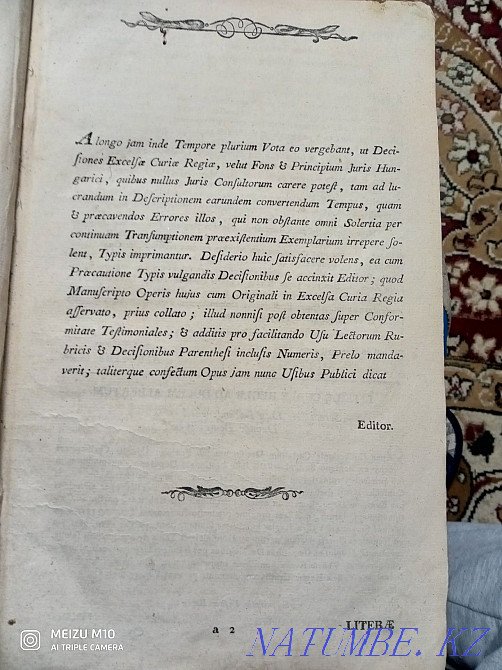 A longo jam inde Tempore plurium Vota eo vergebant, ut Deci-
ſiones Excelſæ Curiæ Regiæ, velut Fons & Principium Juris Hun-
garici, quibus nullus Juris Conſultorum carere poteſt, tam ad lu-
crandum in Deſcriptionem earundem convertendum Tempus, quam
& præcavendos Errores illos, qui non obſtante omni Solertia per
continuam Tranſumptionem præexiſtentium Exemplarium irrepere ſo-
lent, Typis imprimantur. Deſiderio huic ſatisfacere volens, ea cum
Præcautione Typis vulgandis Deciſionibus ſe accinxit Editor; quod
Manuſcripto Operis hujus cum Originali in Excelſa Curia Regia
aſſervato, prius collato; illud nonniſi poſt obtentas ſuper Confor-
mitate Teſtimoniales; & additis pro facilitando Uſu Lectorum Ru-
bricis & Deciſionibus Parentheſi incluſis Numeris, Prelo manda-
verit; taliterque confectum Opus jam nunc Uſibus Publici dicat
Editor.
a 2
LITERÆ
MEIZU M10
AI TRIPLE CAMERA
NATUMBE.KZ